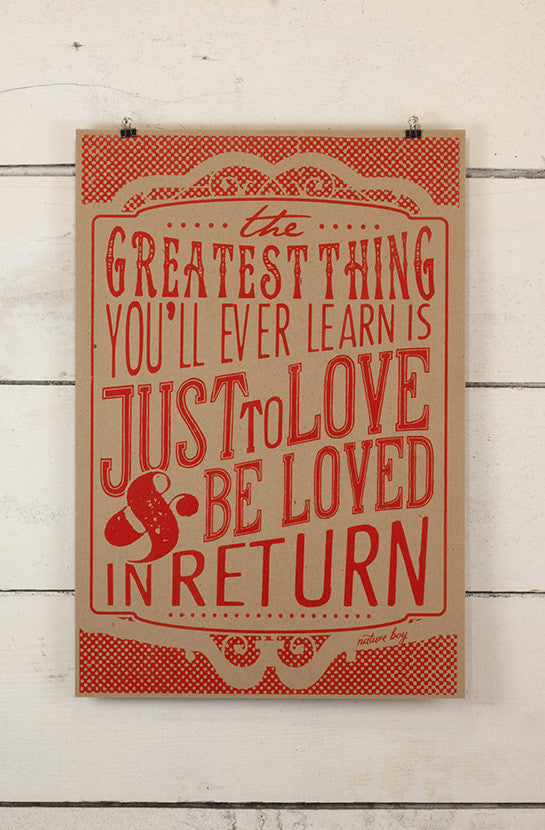 the
GREATEST THING
YOU'LL EVER LEARN IS
JUST TO LOVE
& BE LOVED
IN RETURN
nature boy